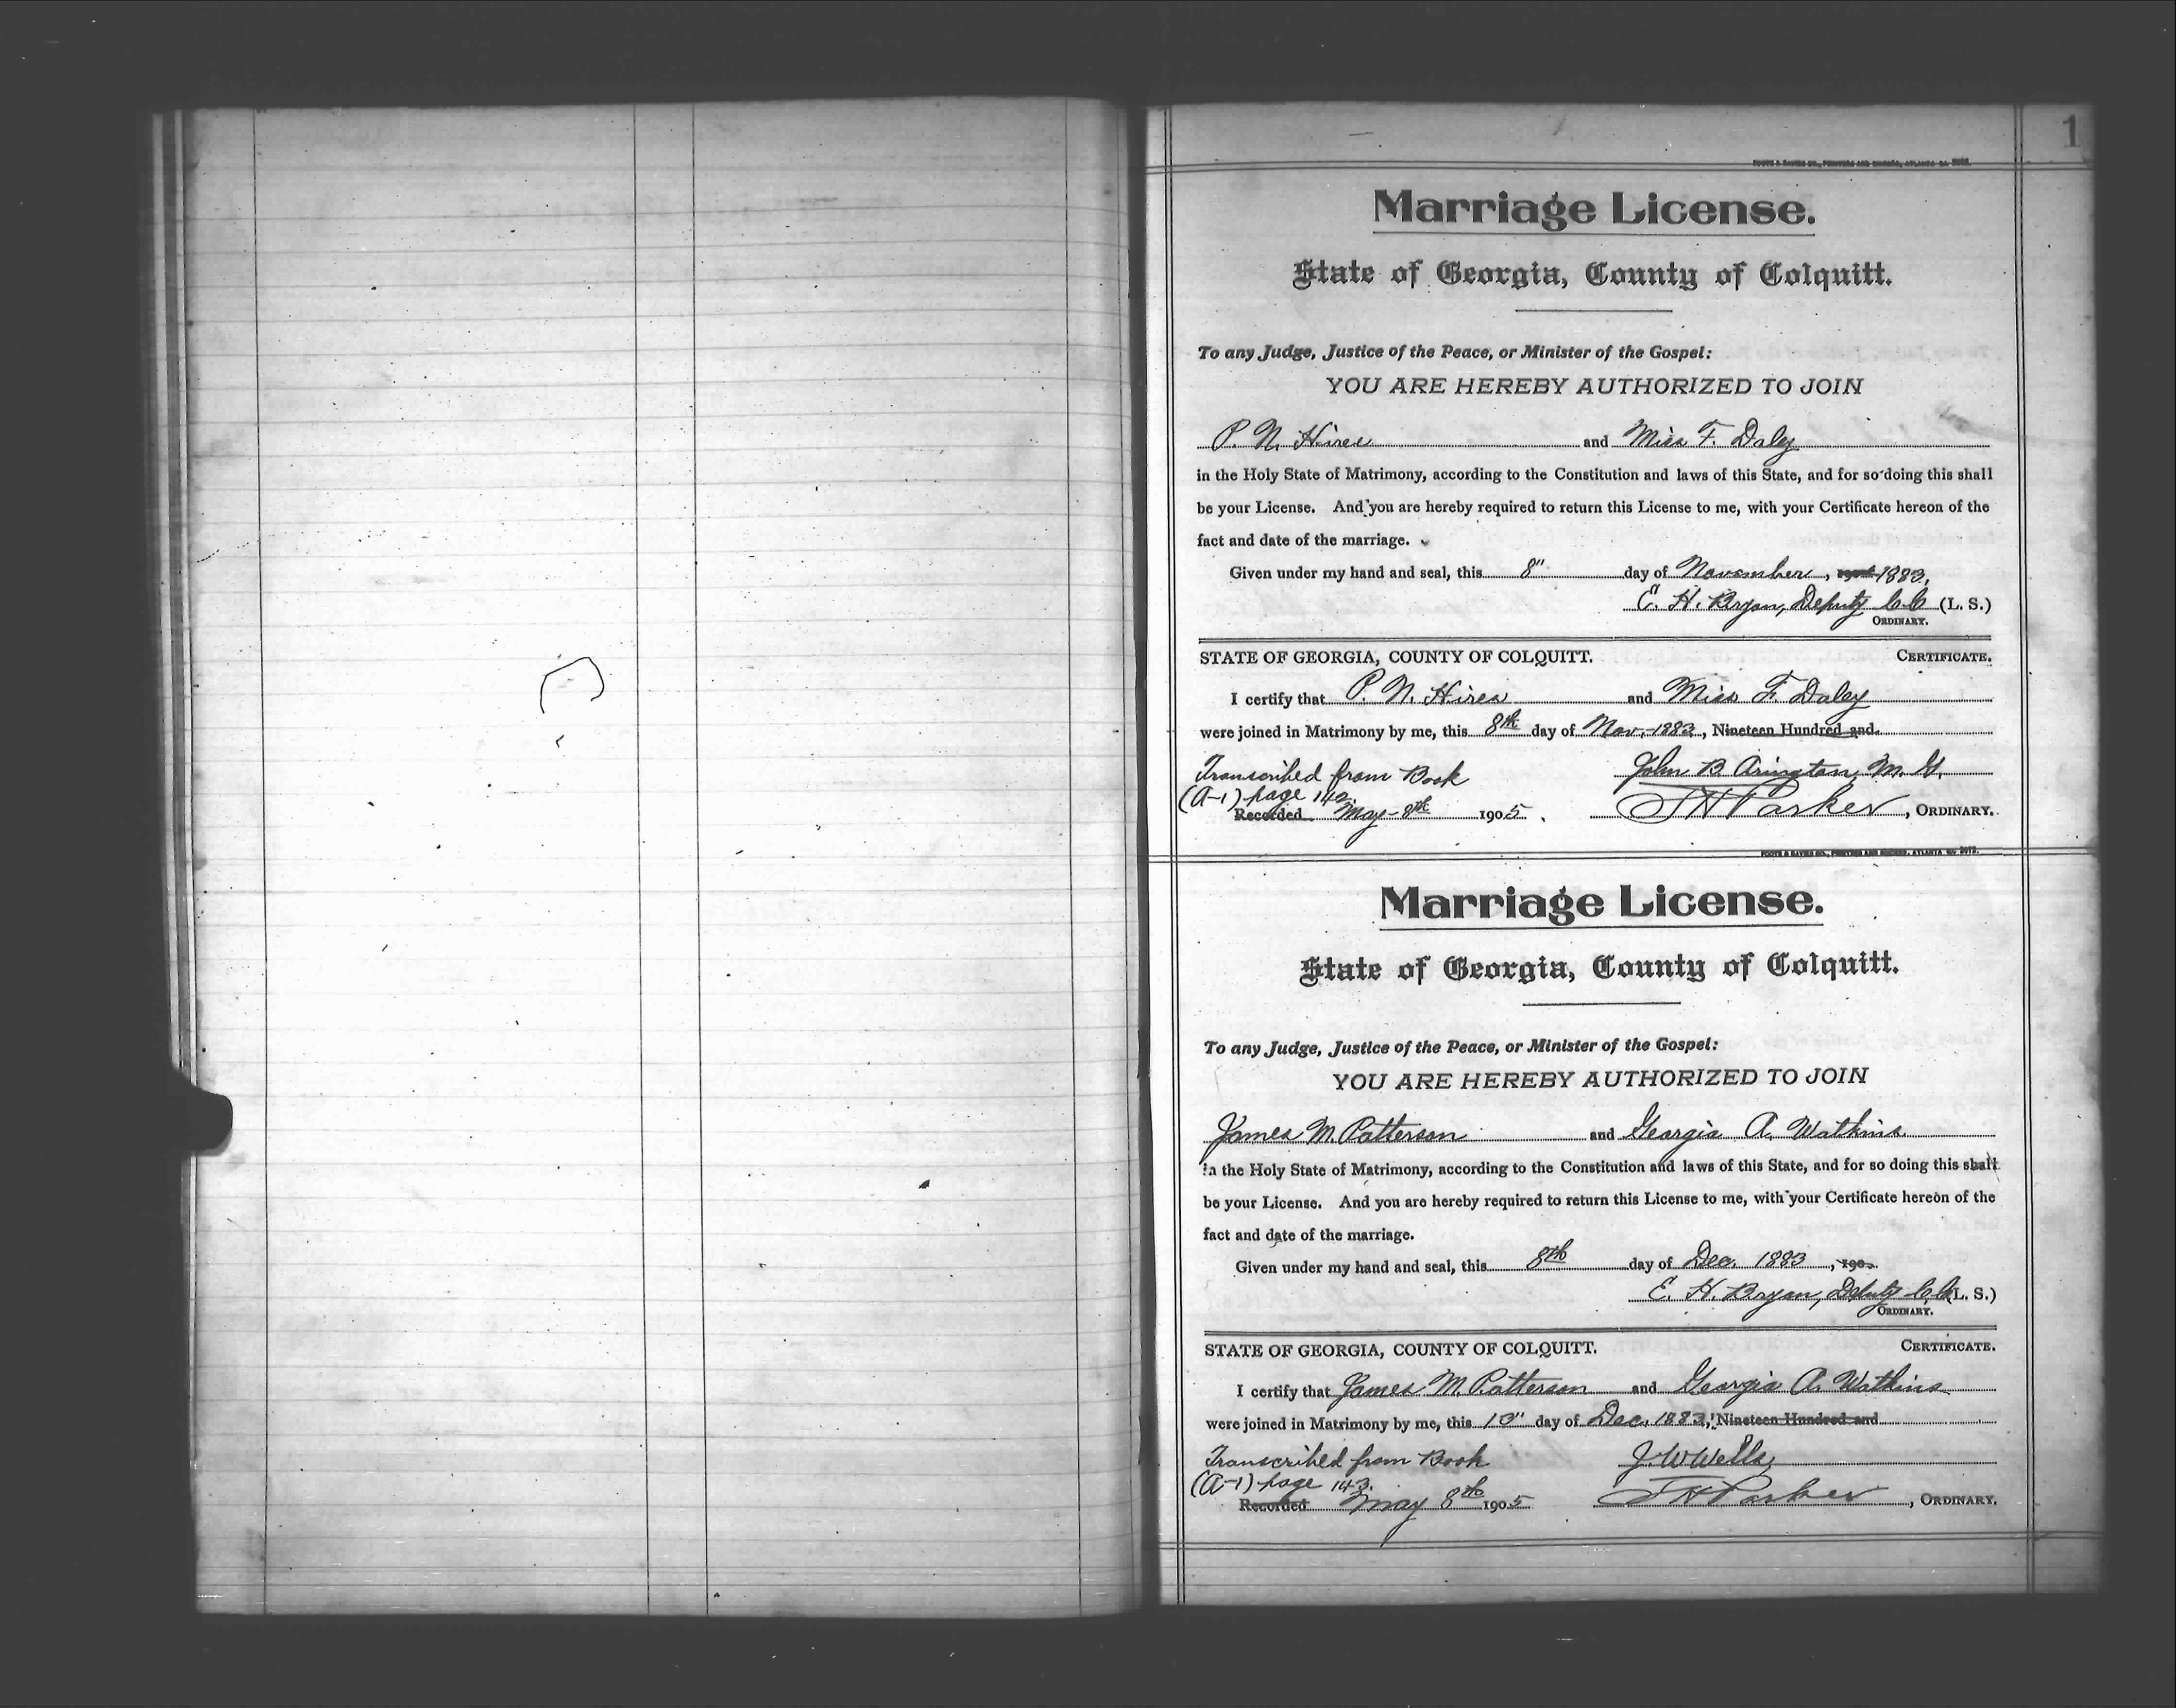 1
FOOTE & DAVIES CO., PRINTERS AND BINDERS, ATLANTA, GA.
Marriage License.
State of Georgia, County of Colquitt.
To any Judge, Justice of the Peace, or Minister of the Gospel:
YOU ARE HEREBY AUTHORIZED TO JOIN
P. N. Hires and Miss F. Daley
in the Holy State of Matrimony, according to the Constitution and laws of this State, and for so doing this shall
be your License. And you are hereby required to return this License to me, with your Certificate hereon of the
fact and date of the marriage.
Given under my hand and seal, this 8" day of November, 1883,
E. H. Bryan, Deputy C.C. (L. S.)
ORDINARY.
STATE OF GEORGIA, COUNTY OF COLQUITT. CERTIFICATE.
I certify that P. N. Hires and Miss F. Daley
were joined in Matrimony by me, this 8th day of Nov. 1883, Nineteen Hundred and
Transcribed from Book John B Arington, M. G.
(A-1) page 142.
Recorded May-8th 1905. J H Parker, ORDINARY.
FOOTE & DAVIES CO., PRINTERS AND BINDERS, ATLANTA, GA.
Marriage License.
State of Georgia, County of Colquitt.
To any Judge, Justice of the Peace, or Minister of the Gospel:
YOU ARE HEREBY AUTHORIZED TO JOIN
James M. Patterson and Georgia A. Watkins
in the Holy State of Matrimony, according to the Constitution and laws of this State, and for so doing this shall
be your License. And you are hereby required to return this License to me, with your Certificate hereon of the
fact and date of the marriage.
Given under my hand and seal, this 8th day of Dec. 1883, 190
E. H. Bryan, Deputy C.C. (L. S.)
ORDINARY.
STATE OF GEORGIA, COUNTY OF COLQUITT. CERTIFICATE.
I certify that James M. Patterson and Georgia A. Watkins
were joined in Matrimony by me, this 13" day of Dec. 1883, Nineteen Hundred and
Transcribed from Book J. W Wells,
(A-1) page 143.
Recorded May 8th 1905 J H Parker, ORDINARY.